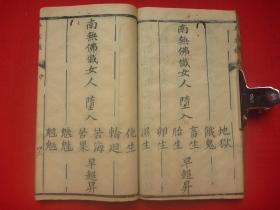 南無佛懺女人 墮入
地獄
餓鬼
畜生
胎生
卵生
濕生
早超昇
南無佛懺女人 墮入
化生
輪廻
苦海
苦果
早超昇